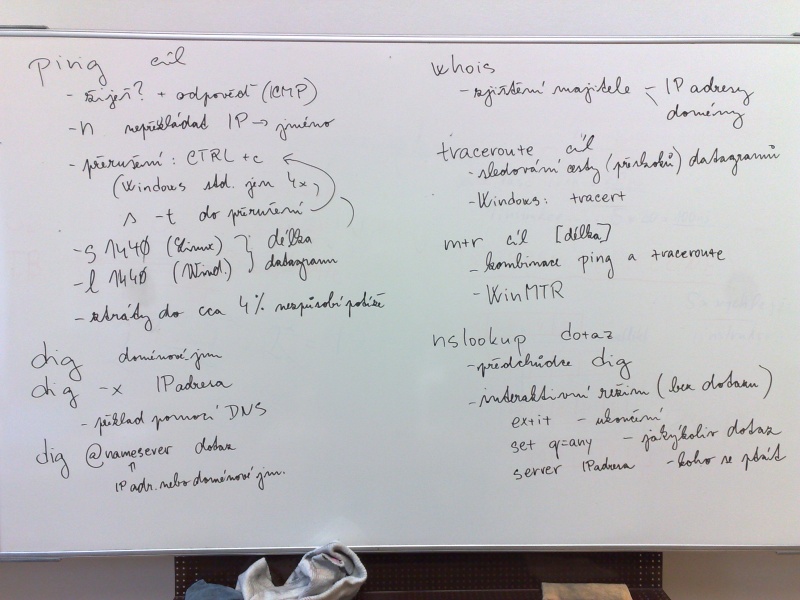 ping cíl
- žiješ? + odpověď (ICMP)
-n nepřekládat IP → jméno
- přerušení : CTRL + c
(Windows std. jen 4x,
s -t do přerušení )
-s 1440 (Linux) } délka
-l 1440 (Wind.) datagramu
- ztráty do cca 4% nezpůsobí potíže
dig doménové jm
dig -x IP adresa
- překlad pomocí DNS
dig @namesever dotaz
IP adr. nebo doménové jm.
whois
- zjištění majitele - IP adresy
domény
traceroute cíl
- sledování cesty (přeskoků) datagramů
- Windows: tracert
mtr cíl [délka]
- kombinace ping a traceroute
- WinMTR
nslookup dotaz
- předchůdce dig
- interaktivní režim (bez dotazu)
exit - ukončení
set q=any - jakýkoliv dotaz
server IP adresa - koho se ptát